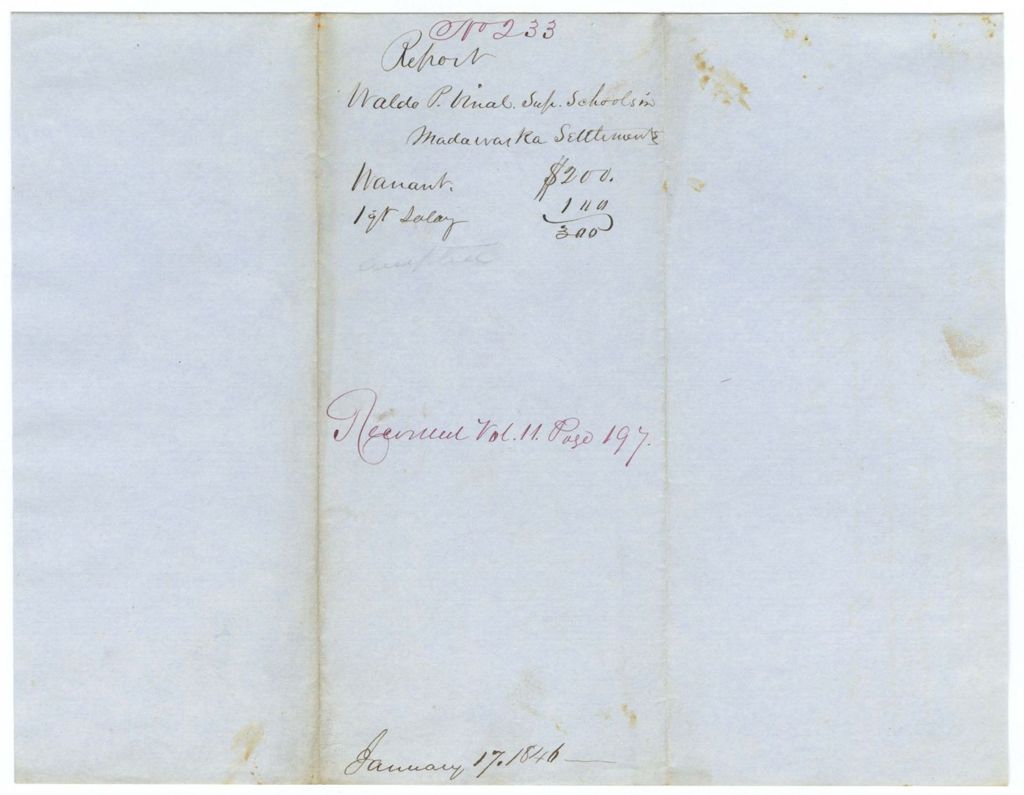 No 233
Report
Waldo P. Vinal. Sup. Schools in
Madawaska Settlements
Warrant. $200.
1 qr Salay 100
300
accepted
Recorded Vol. 11. Page 197.
January 17. 1846